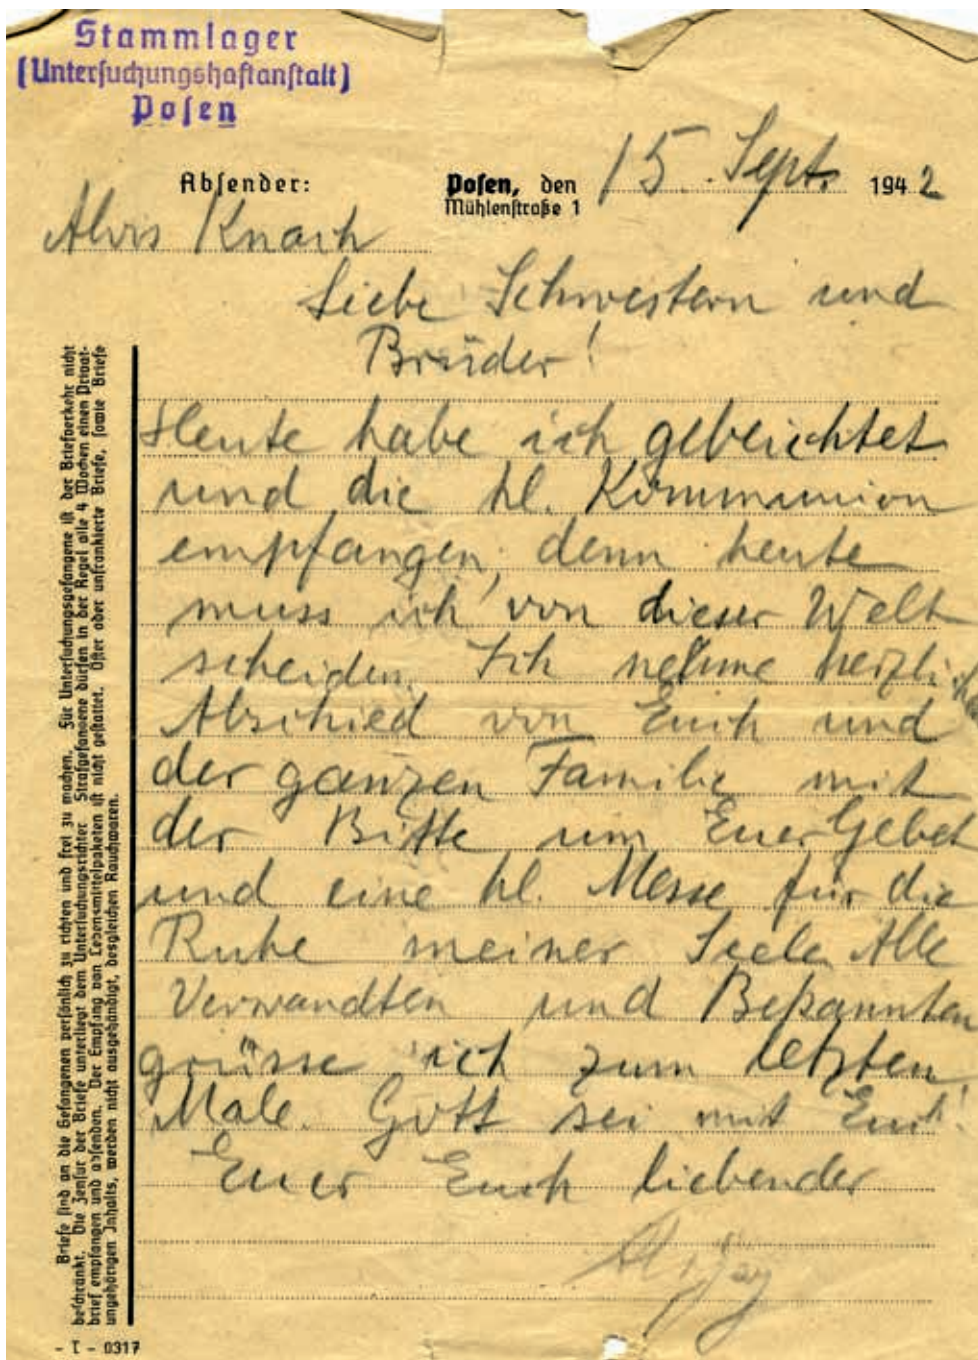 Stammlager
(Untersuchungshaftanstalt)
Posen
Absender:
Posen, den 15. Sept. 1942
Mühlenstraße 1
Alois Knach
Liebe Schwestern und
Brüder!
Heute habe ich gebeichtet
und die hl. Kommunion
empfangen, denn heute
muss ich von dieser Welt
scheiden. Ich nehme herzlich
Abschied von Euch und
der ganzen Familie mit
der Bitte um Euer Gebet
und eine hl. Messe für die
Ruhe meiner Seele. Alle
Verwandten und Bekannten
grüsse ich zum letzten
Male. Gott sei mit Euch!
Euer Euch liebender
Briefe sind an die Gefangenen persönlich zu richten und frei zu machen. Für Untersuchungsgefangene ist der Briefverkehr nicht
beschränkt. Die Zensur der Briefe unterliegt dem Untersuchungsrichter. Strafgefangene dürfen in der Regel alle 4 Wochen einen Privat-
brief empfangen und absenden. Der Empfang von Lebensmittelpaketen ist nicht gestattet. Öfter oder unfrankierte Briefe, sowie Briefe
ungehörigen Inhalts, werden nicht ausgehändigt, desgleichen Rauchwaren.
- I - 0317